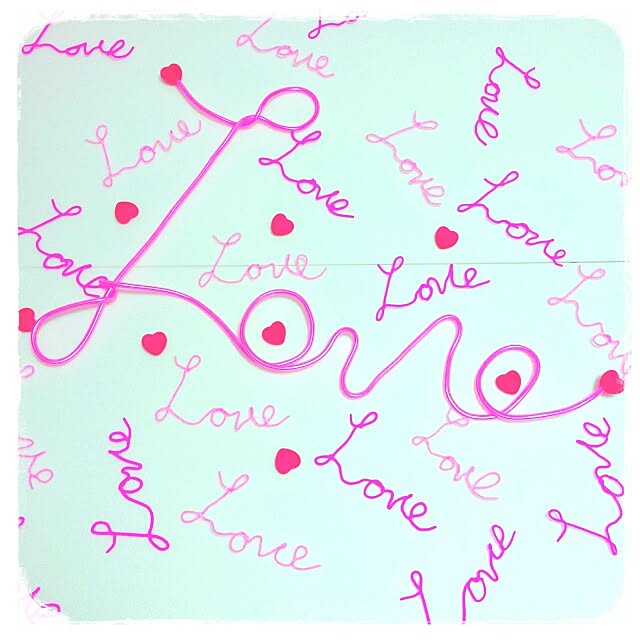 Love
Love
Love
Love
Love
Love
Love
Love
Love
Love
Love
Love
Love
Love
Love
Love
Love
Love
Love
Love